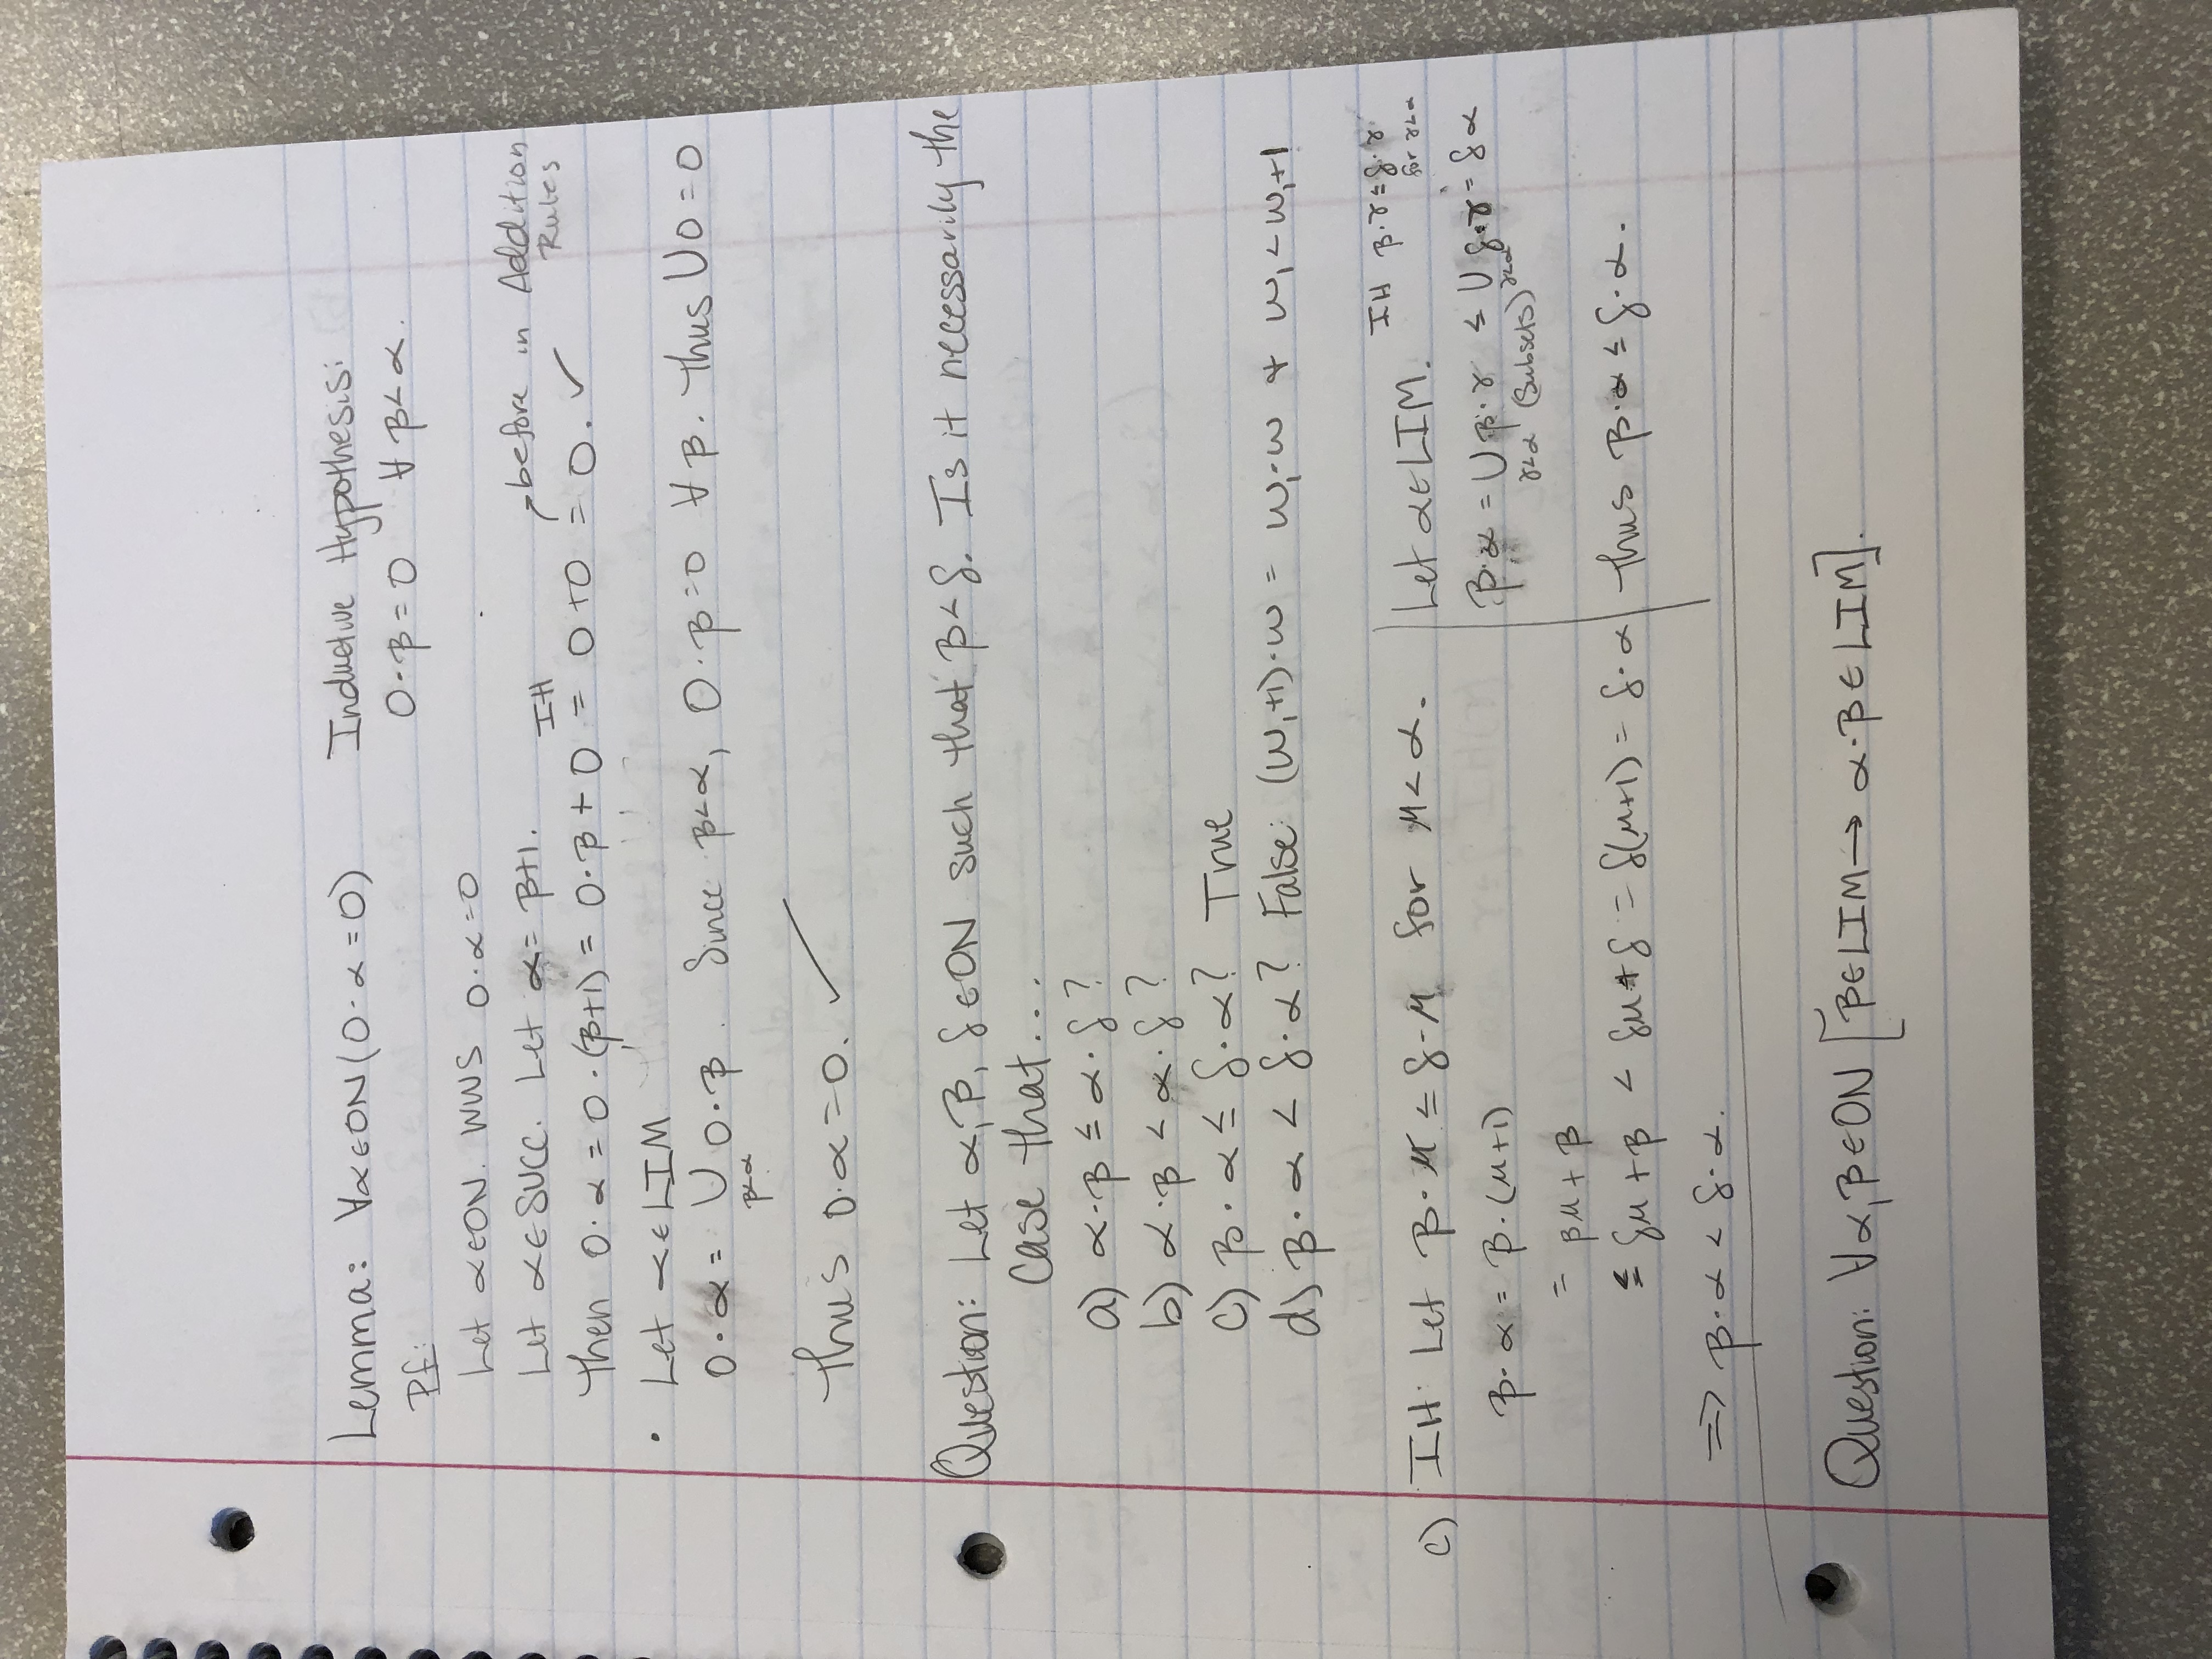 Lemma: ∀α∈ON(0·α=0)
Inductive Hypothesis:
0·β=0 ∀ β<α.
Pf:
Let α∈ON. WWS 0·α=0
Let α∈SUCC. Let α= β+1.
before in Addition Rules
IH
Then 0·α = 0·(β+1) = 0·β + 0 = 0+0 = 0. ✓
• Let α∈LIM
0·α = ∪ 0·β. Since β<α, 0·β=0 ∀β. Thus ∪0=0
β<α
Thus 0·α=0. ✓
Question: Let α, β, δ∈ON such that β<δ. Is it necessarily the
case that...
a) α·β ≤ α·δ?
b) α·β < α·δ?
c) β·α ≤ δ·α? True
d) β·α < δ·α? False: (ω₁+1)·ω = ω₁·ω + ω₁<ω₁+1
c) IH: Let β·μ ≤ δ·μ for μ<α.
β·α = β·(μ+1)
= βμ + β
≤ δμ+β < δμ+δ = δ(μ+1) = δ·α
⇒ β·α < δ·α.
Let α∈LIM.
IH β·γ≤δ·γ
for γ<α
β·α = ∪ β·γ ≤ ∪ δ·γ = δα
γ<α (subsets) γ<α
Thus β·α ≤ δ·α.
Question: ∀α,β∈ON [β∈LIM→ α·β∈LIM].